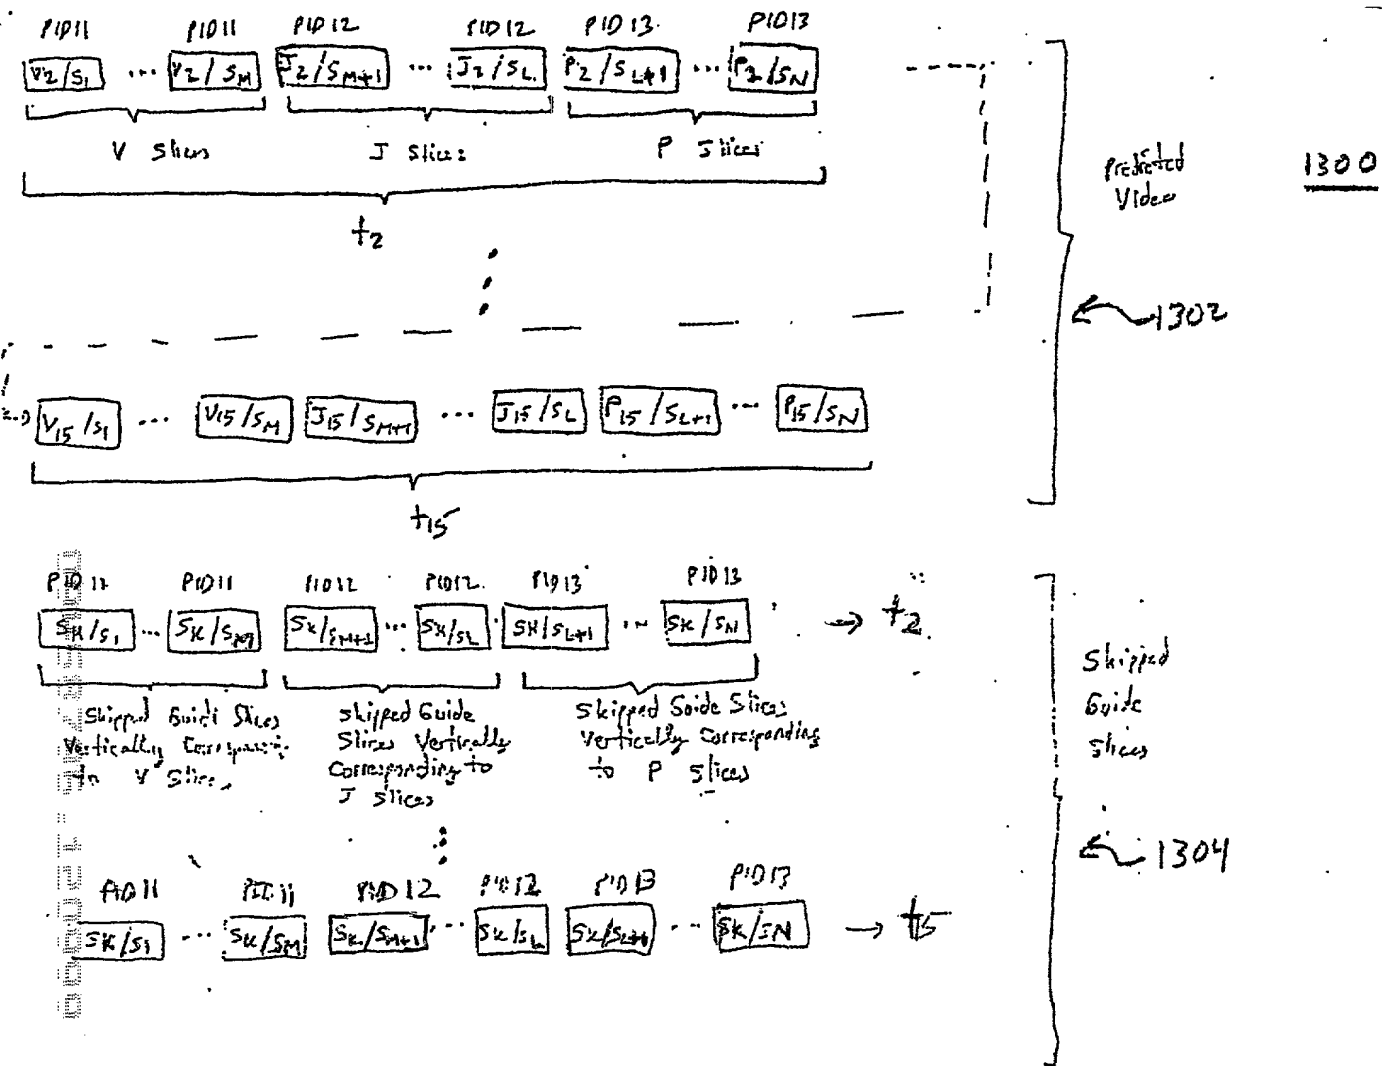 PID11 PID11 PID12 PID12 PID13 PID13
V2/S1 ... V2/SM J2/SM+1 ... J2/SL P2/SL+1 ... P2/SN
V Slices J Slices P Slices
t2
Predicted
Video
1300
1302
V15/S1 ... V15/SM J15/SM+1 ... J15/SL P15/SL+1 ... P15/SN
t15
PID11 PID11 PID12 PID12 PID13 PID13
SK/S1 ... SK/SM SK/SM+1 ... SK/SL SK/SL+1 ... SK/SN → t2
Skipped Guide Slices
Vertically Corresponding
to V Slices
Skipped Guide
Slices Vertically
Corresponding to
J Slices
Skipped Guide Slices
Vertically Corresponding
to P Slices
Skipped
Guide
Slices
1304
PID11 PID11 PID12 PID12 PID13 PID13
SK/S1 ... SK/SM SK/SM+1 ... SK/SL SK/SL+1 ... SK/SN → t15